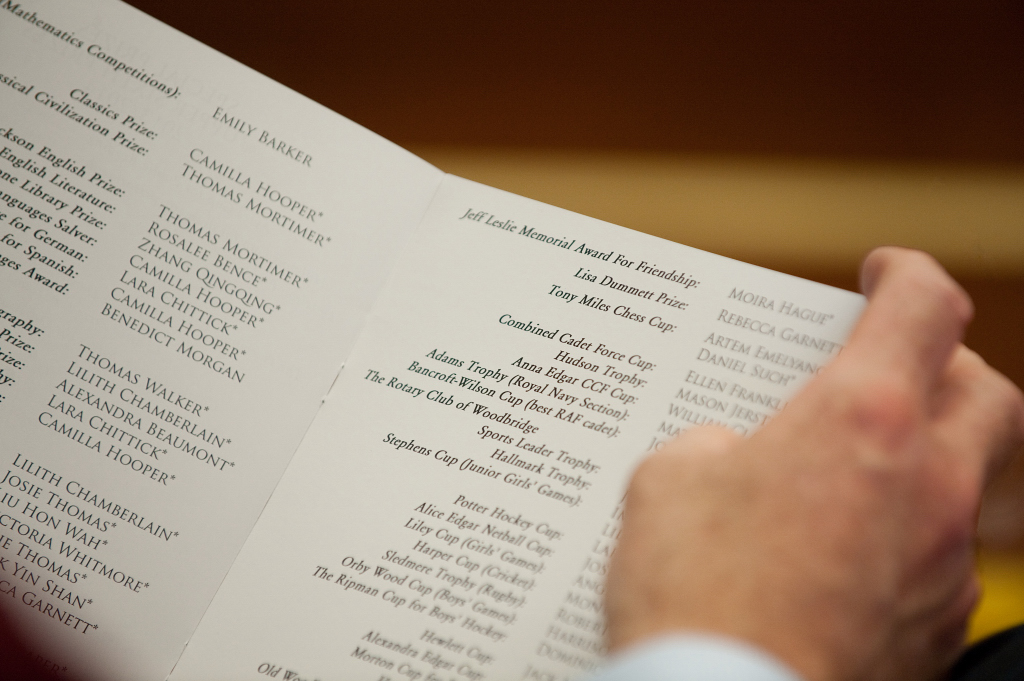 Mathematics Competitions):
EMILY BARKER
Classics Prize:
Civilization Prize:
CAMILLA HOOPER*
THOMAS MORTIMER*
English Prize:
English Literature:
Library Prize:
Languages Salver:
for German:
for Spanish:
Award:
THOMAS MORTIMER*
ROSALEE BENCE*
ZHANG QINGQING*
CAMILLA HOOPER*
LARA CHITTICK*
CAMILLA HOOPER*
BENEDICT MORGAN
THOMAS WALKER*
LILITH CHAMBERLAIN*
ALEXANDRA BEAUMONT*
LARA CHITTICK*
CAMILLA HOOPER*
LILITH CHAMBERLAIN*
JOSIE THOMAS*
HON WAH*
WHITMORE*
THOMAS*
YIN SHAN*
GARNETT*
Jeff Leslie Memorial Award For Friendship:
Lisa Dummett Prize:
MOIRA HAGUE*
Tony Miles Chess Cup:
REBECCA GARNETT
Combined Cadet Force Cup:
ARTEM
Hudson Trophy:
DANIEL SUCH*
Anna Edgar CCF Cup:
ELLEN
Adams Trophy (Royal Navy Section):
MASON
Bancroft-Wilson Cup (best RAF cadet):
The Rotary Club of Woodbridge
Sports Leader Trophy:
Hallmark Trophy:
Stephens Cup (Junior Girls' Games):
Potter Hockey Cup:
Alice Edgar Netball Cup:
Liley Cup (Girls' Games):
Harper Cup (Cricket):
Sledmere Trophy (Rugby):
Orby Wood Cup (Boys' Games):
The Ripman Cup for Boys' Hockey:
Hewlett Cup:
Alexandra Edgar Cup:
Morton Cup for
Old